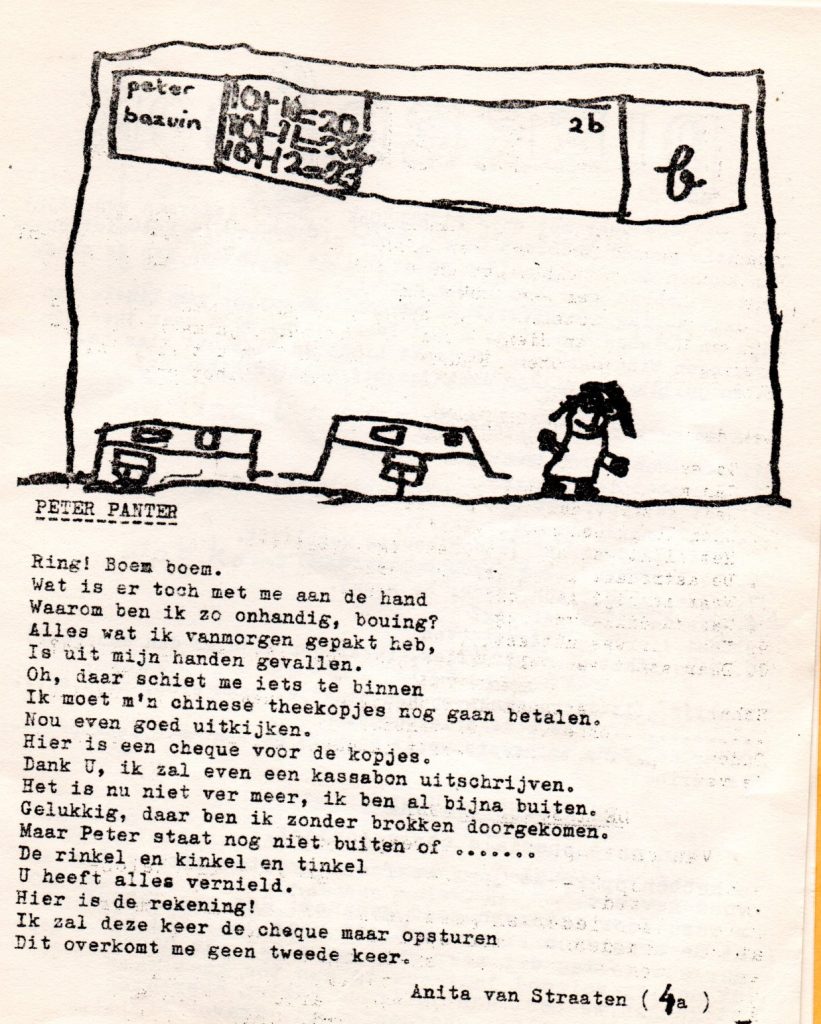 peter
bazuin
10+10=20
10+12=23
2b
b
PETER PANTER
Ring! Boem boem.
Wat is er toch met me aan de hand
Waarom ben ik zo onhandig, bouing?
Alles wat ik vanmorgen gepakt heb,
Is uit mijn handen gevallen.
Oh, daar schiet me iets te binnen
Ik moet m'n chinese theekopjes nog gaan betalen.
Nou even goed uitkijken.
Hier is een cheque voor de kopjes.
Dank U, ik zal even een kassabon uitschrijven.
Het is nu niet ver meer, ik ben al bijna buiten.
Gelukkig, daar ben ik zonder brokken doorgekomen.
Maar Peter staat nog niet buiten of .......
De rinkel en kinkel en tinkel
U heeft alles vernield.
Hier is de rekening!
Ik zal deze keer de cheque maar opsturen
Dit overkomt me geen tweede keer.
Anita van Straaten ( 4a )